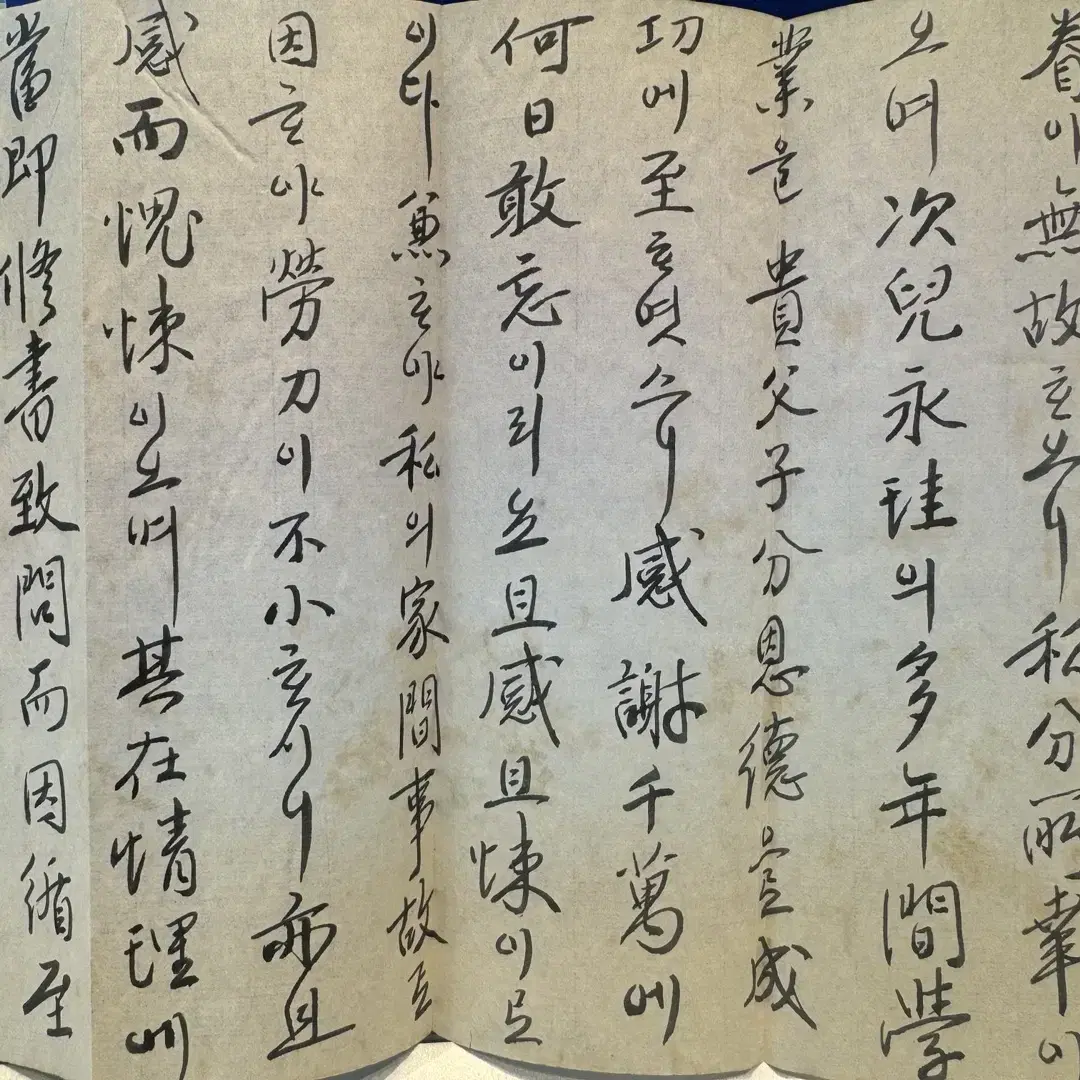 眷이無故하오니私分所幸이
오며次兒永珪의多年間學
業은貴父子分恩德으로成
功에至하엿스니感謝千萬에
何日敢忘이리오且感且悚이로
이다兼하야私의家間事故로
因하야勞力이不小하시니亦且
感而愧悚이오며其在情理에
當卽修書致問而因循至